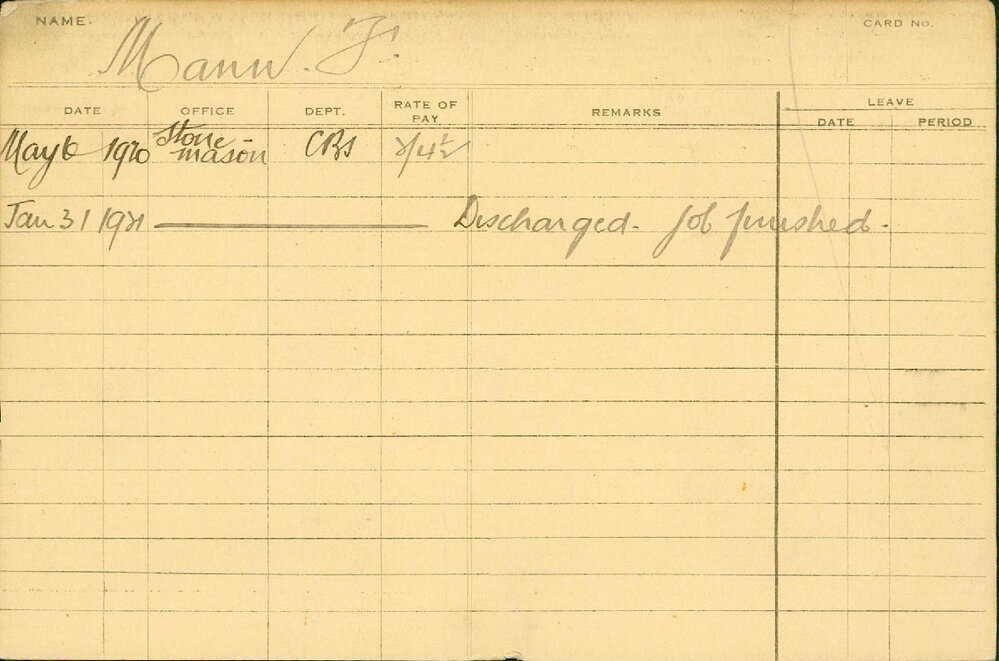 NAME. Mann. F. CARD No.
DATE OFFICE DEPT. RATE OF PAY REMARKS LEAVE
DATE PERIOD
May 6 1920 Stone-mason CBS 2/4½
Jan 31 1921 Discharged. Job finished.